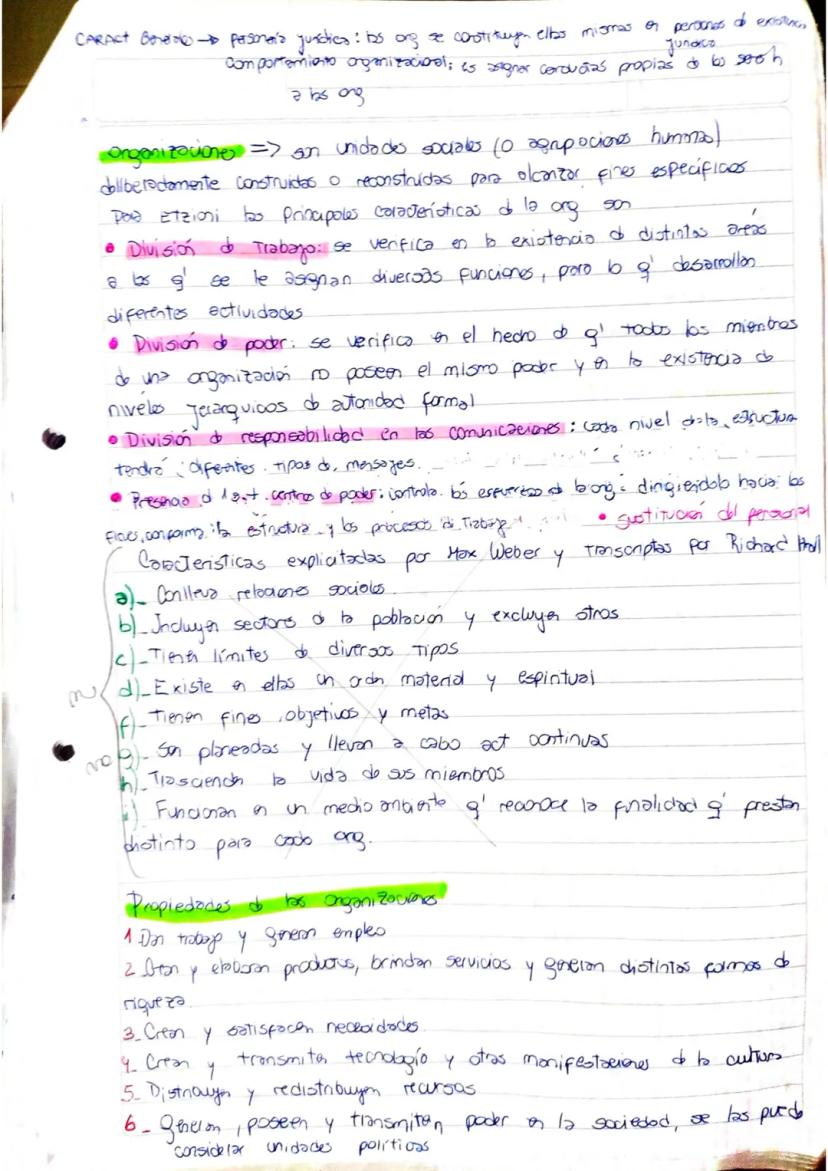 CARACT Generales → personería jurídica: las org se constituyen ellas mismas en personas d existencia
jurídica
comportamiento organizacional: es asignar conductas propias de los seres h
a las org
Organizaciones => son unidades sociales (o agrupaciones humanas)
deliberadamente construidas o reconstruidas para alcanzar fines específicos
Para Etzioni las principales características d la org son
• División d Trabajo: se verifica en la existencia d distintas áreas
a las q' se le asignan diversas funciones, para lo q' desarrollan
diferentes actividades
• División de poder: se verifica en el hecho de q' todos los miembros
de una organización no poseen el mismo poder y en la existencia de
niveles jerárquicos de autoridad formal
• División d responsabilidad en las comunicaciones: cada nivel de la estructura
tendrá diferentes tipos de mensajes.
• Presencia d 1 o + centros de poder: controla los esfuerzos de la org dirigiéndolo hacia los
fines, conforma la estructura y los procesos de Trabajo • sustitución del personal
Características explicitadas por Max Weber y transcriptas por Richard Hall
a)- Conlleva relaciones sociales
b)- Incluyen sectores d la población y excluyen otros
c)- Tienen límites de diversos tipos
d)- Existe en ellas un orden material y espiritual
f)- Tienen fines, objetivos y metas
no g)- Son planeadas y llevan a cabo act continuas
h)- Trascienden la vida de sus miembros
i) Funcionan en un medio ambiente q' reconoce la finalidad q' prestan
distinto para cada org.
Propiedades d las organizaciones
1 Dan trabajo y generan empleo
2 y elaboran productos, brindan servicios y generan distintas formas de
riqueza
3- Crean y satisfacen necesidades
4- Crean y transmiten tecnología y otras manifestaciones d la cultura
5- Distribuyen y redistribuyen recursos
6- Generan, poseen y transmiten poder en la sociedad, se las puede
considerar unidades políticas